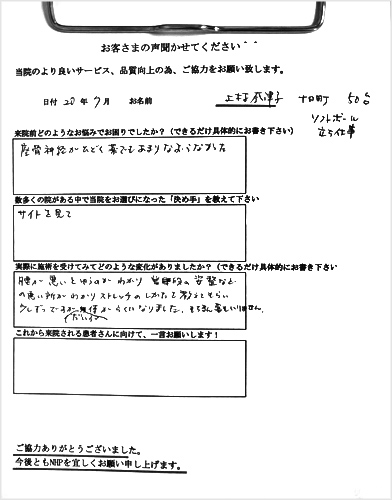 お客さまの声聞かせてください＾＾
当院のより良いサービス、品質向上の為、ご協力をお願い致します。
日付 20年7月 お名前 上村 津子 十日町 50台
ソフトボール
立ち仕事
来院前どのようなお悩みでお困りでしたか？（できるだけ具体的にお書き下さい）
座骨神経がひどく薬でもあまりなおらなかった
数多くの院がある中で当院をお選びになった「決め手」を教えて下さい
サイトを見て
実際に施術を受けてみてどのような変化がありましたか？（できるだけ具体的にお書き下さい
腰が悪いとゆうのがわかり 姿整など
の悪い所がわかりストレッチのしかたを教えてもらい
少しずつですが 身体がらくになりました。もちろん薬もいりません。
だいぶ
これから来院される患者さんに向けて、一言お願いします！
ご協力ありがとうございました。
今後ともNHPを宜しくお願い申し上げます。